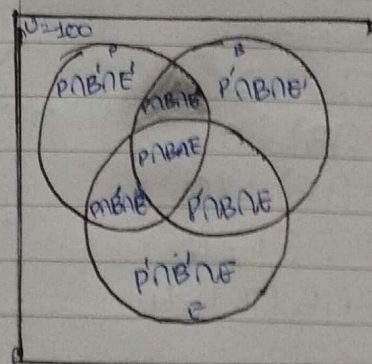 U=100
P B
P∩B'∩E' P∩B∩E' P'∩B∩E'
P∩B∩E
P∩B'∩E P'∩B∩E
P'∩B'∩E
E